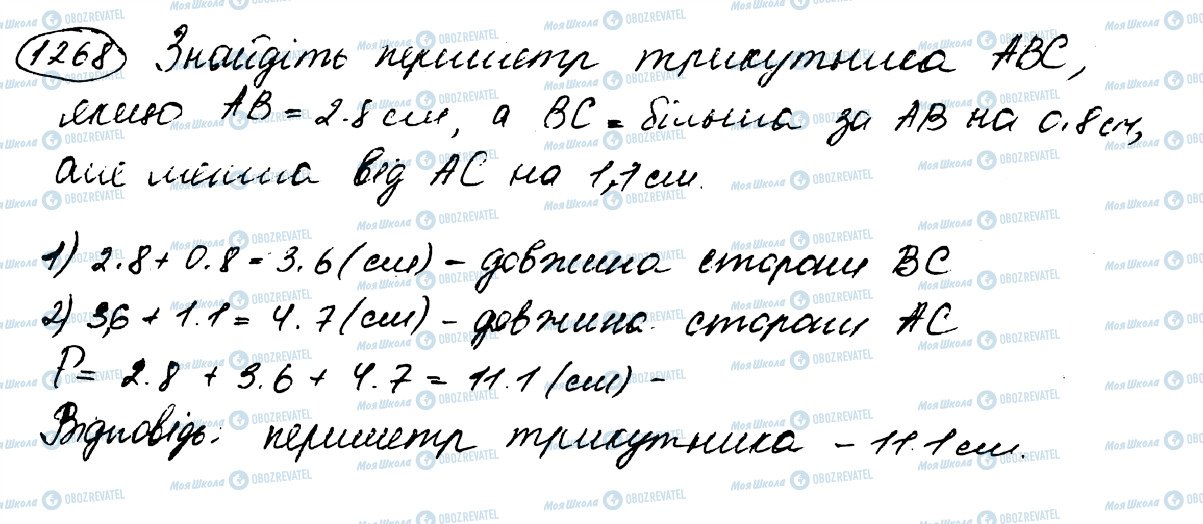 1268 Знайдіть периметр трикутника ABC,
якщо AB = 2.8 см, а BC = більша за AB на 0.8 см,
але менша від AC на 1,1 см.
1) 2.8 + 0.8 = 3.6 (см) - довжина сторони BC
2) 3,6 + 1.1 = 4.7 (см) - довжина сторони AC
P = 2.8 + 3.6 + 4.7 = 11.1 (см) -
Відповідь: периметр трикутника - 11.1 см.